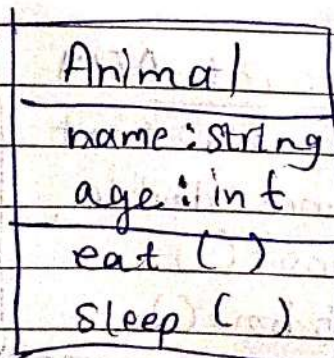 Animal
name : string
age : int
eat ( )
sleep ( )